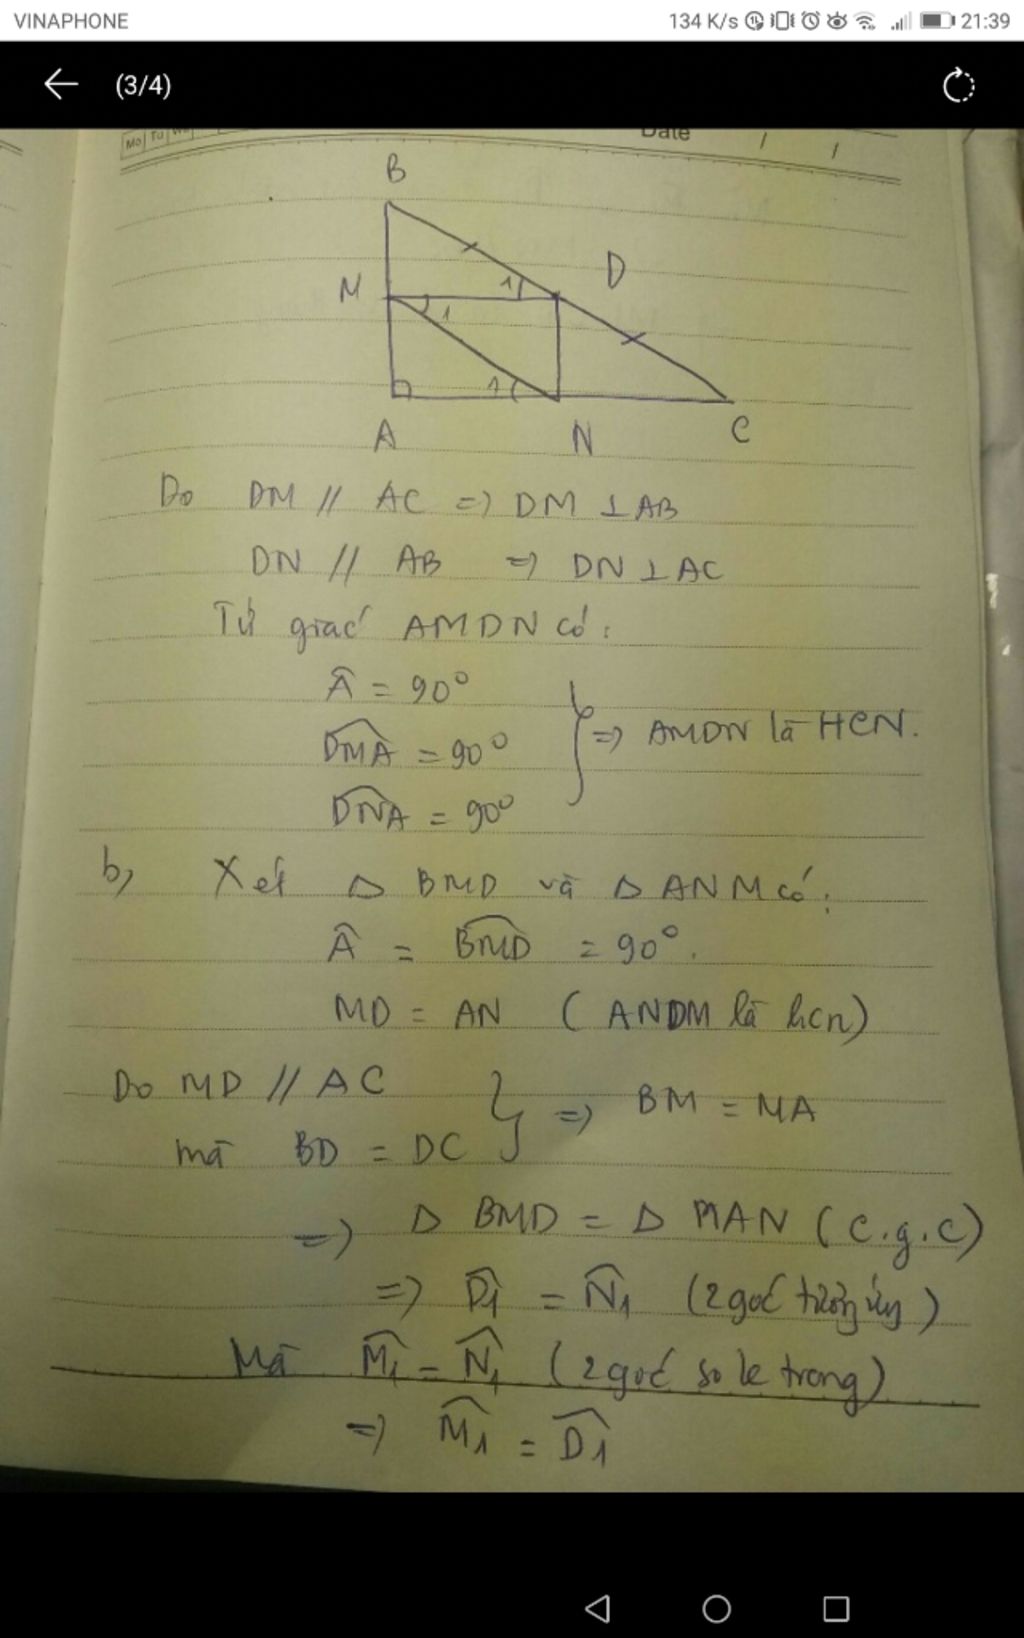 VINAPHONE 134 K/s 21:39
(3/4)
Mo Tu We Date / /
B
M 1 D
1
1
A N C
Do DM // AC => DM ⊥ AB
DN // AB => DN ⊥ AC
Tứ giác AMDN có:
Â = 90°
\widehat{DMA} = 90° } => AMDN là HCN.
\widehat{DNA} = 90°
b, Xét Δ BMD và Δ ANM có:
Â = \widehat{BMD} = 90°.
MD = AN ( ANDM là hcn)
Do MD // AC } => BM = MA
mà BD = DC
=> Δ BMD = Δ MAN ( c.g.c)
=> \widehat{D1} = \widehat{N1} (2 góc tương ứng)
Mà \widehat{M1} = \widehat{N1} ( 2 góc so le trong)
=> \widehat{M1} = \widehat{D1}